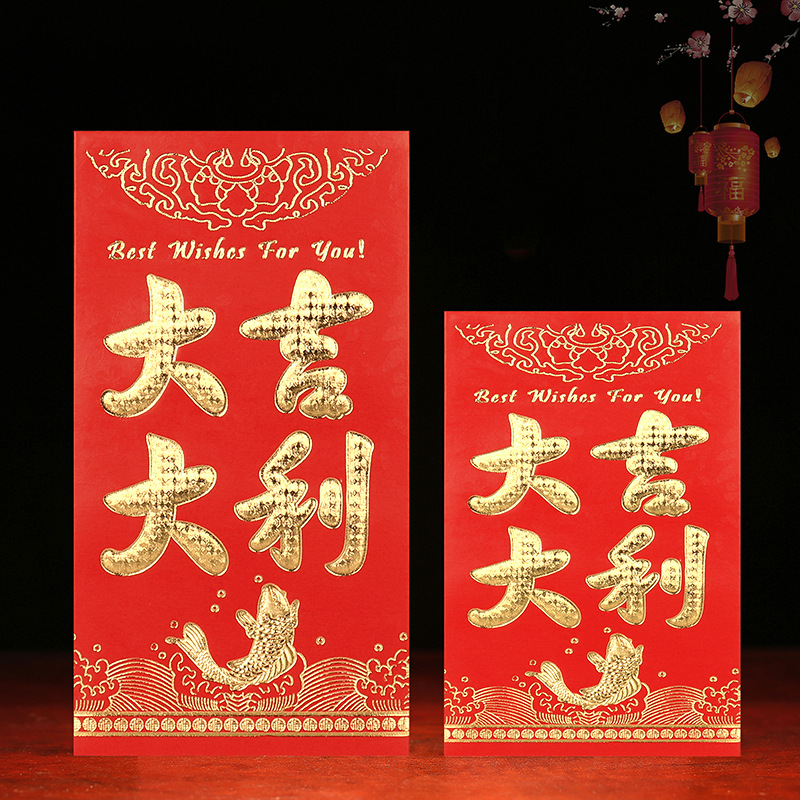 Best Wishes For You!
大吉
大利
Best Wishes For You!
大吉
大利
福